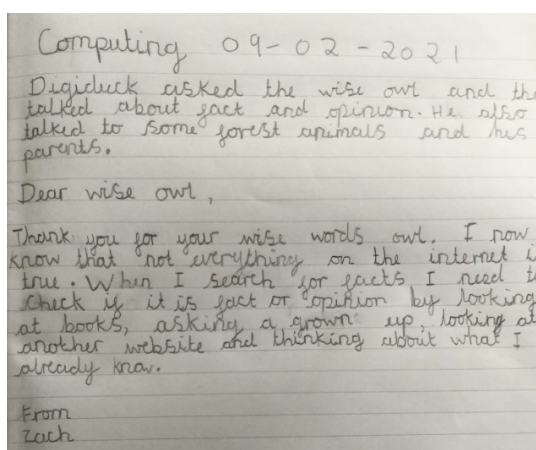 Computing 09-02-2021
Digiduck asked the wise owl and the
talked about fact and opinion. He also
talked to some forest animals and his
parents.
Dear wise owl,
Thank you for your wise words owl. I now
know that not everything on the internet i
true. When I search for facts I need t
check if it is fact or opinion by looking
at books, asking a grown up, looking at
another website and thinking about what I
already know.
From
Zach